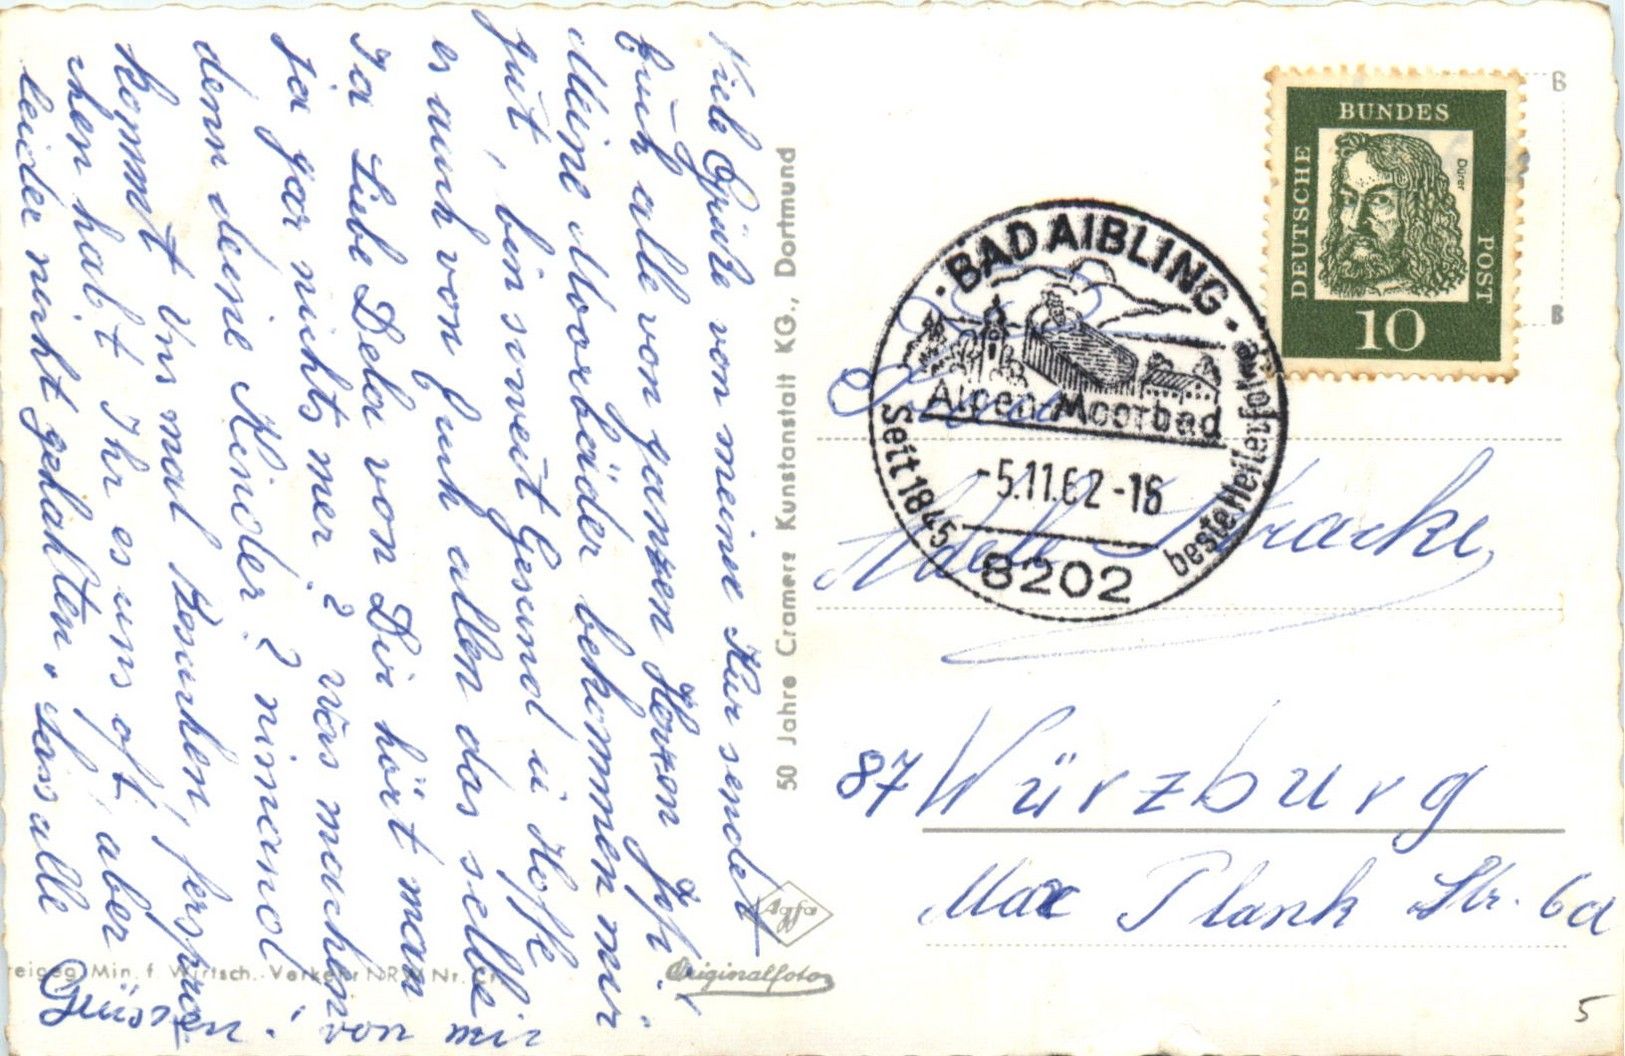 Viele Grüße von meine Kur sendet
Euch alle von ganzen Herzen Josi!
Meine Moorbäder bekommen mir
gut, bin soweit Gesund u Hoffe
es auch von Euch allen das selbe
Ja Liebe Dela von Dir hört man
ja gar nichts mer? was machen
denn deine Kinder? nimand
kommt Uns mal besuchen, fersproc-
chen habt Ihr es uns oft, aber
leider nicht gehahlten. Las alle
Grüssen! von mir
50 Jahre Cramers Kunstanstalt KG., Dortmund
Agfa
Originalfoto
reigeg. Min. f. Wirtsch. Verkehr NRW Nr.
BUNDES
DEUTSCHE
POST
Dürer
10
B
B
· BAD AIBLING ·
Alpen-Moorbad
-5.11.62-16
Seit 1845 beste Heilerfolge
8202
Adele Kracke,
87 Würzburg
Max Plank Str. 6a
5